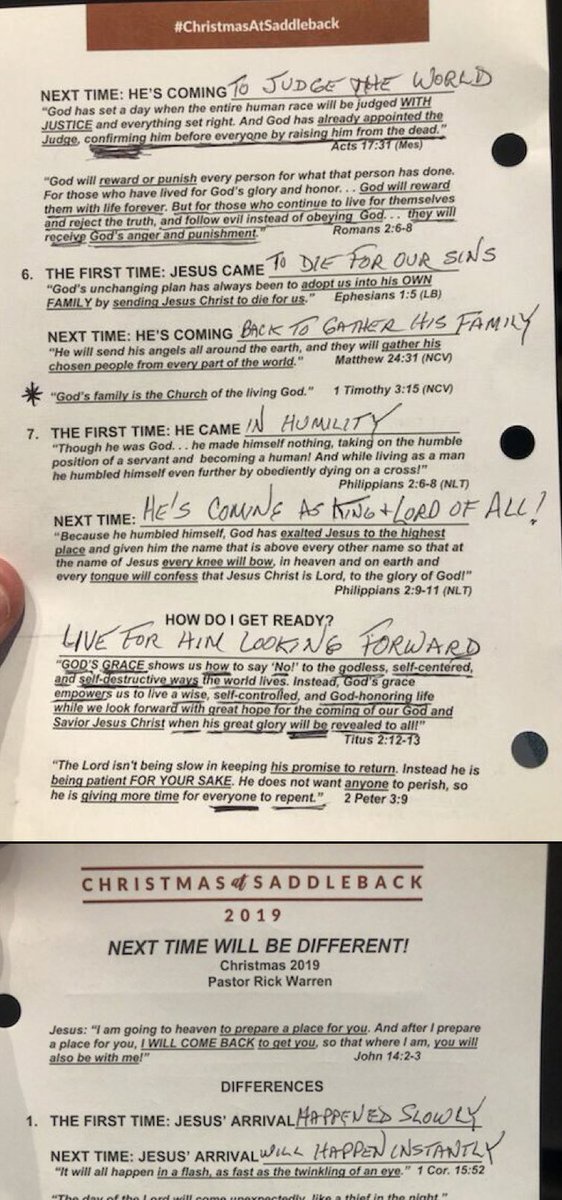 #ChristmasAtSaddleback
NEXT TIME: HE'S COMING TO JUDGE THE WORLD
"God has set a day when the entire human race will be judged WITH
JUSTICE and everything set right. And God has already appointed the
Judge, confirming him before everyone by raising him from the dead."
Acts 17:31 (Mes)
"God will reward or punish every person for what that person has done.
For those who have lived for God's glory and honor. . . God will reward
them with life forever. But for those who continue to live for themselves
and reject the truth, and follow evil instead of obeying God. . . they will
receive God's anger and punishment." Romans 2:6-8
6. THE FIRST TIME: JESUS CAME TO DIE FOR OUR SINS
"God's unchanging plan has always been to adopt us into his OWN
FAMILY by sending Jesus Christ to die for us." Ephesians 1:5 (LB)
NEXT TIME: HE'S COMING BACK TO GATHER HIS FAMILY
"He will send his angels all around the earth, and they will gather his
chosen people from every part of the world." Matthew 24:31 (NCV)
"God's family is the Church of the living God." 1 Timothy 3:15 (NCV)
7. THE FIRST TIME: HE CAME IN HUMILITY
"Though he was God. . . he made himself nothing, taking on the humble
position of a servant and becoming a human! And while living as a man
he humbled himself even further by obediently dying on a cross!"
Philippians 2:6-8 (NLT)
NEXT TIME: HE'S COMING AS KING + LORD OF ALL!
"Because he humbled himself, God has exalted Jesus to the highest
place and given him the name that is above every other name so that at
the name of Jesus every knee will bow, in heaven and on earth and
every tongue will confess that Jesus Christ is Lord, to the glory of God!"
Philippians 2:9-11 (NLT)
HOW DO I GET READY?
LIVE FOR HIM LOOKING FORWARD
"GOD'S GRACE shows us how to say 'No!' to the godless, self-centered,
and self-destructive ways the world lives. Instead, God's grace
empowers us to live a wise, self-controlled, and God-honoring life
while we look forward with great hope for the coming of our God and
Savior Jesus Christ when his great glory will be revealed to all!"
Titus 2:12-13
"The Lord isn't being slow in keeping his promise to return. Instead he is
being patient FOR YOUR SAKE. He does not want anyone to perish, so
he is giving more time for everyone to repent." 2 Peter 3:9
CHRISTMAS at SADDLEBACK
2019
NEXT TIME WILL BE DIFFERENT!
Christmas 2019
Pastor Rick Warren
Jesus: "I am going to heaven to prepare a place for you. And after I prepare
a place for you, I WILL COME BACK to get you, so that where I am, you will
also be with me!" John 14:2-3
DIFFERENCES
1. THE FIRST TIME: JESUS' ARRIVAL HAPPENED SLOWLY
NEXT TIME: JESUS' ARRIVAL WILL HAPPEN INSTANTLY
"It will all happen in a flash, as fast as the twinkling of an eye." 1 Cor. 15:52
"The day of the Lord will come unexpectedly, like a thief in the night."